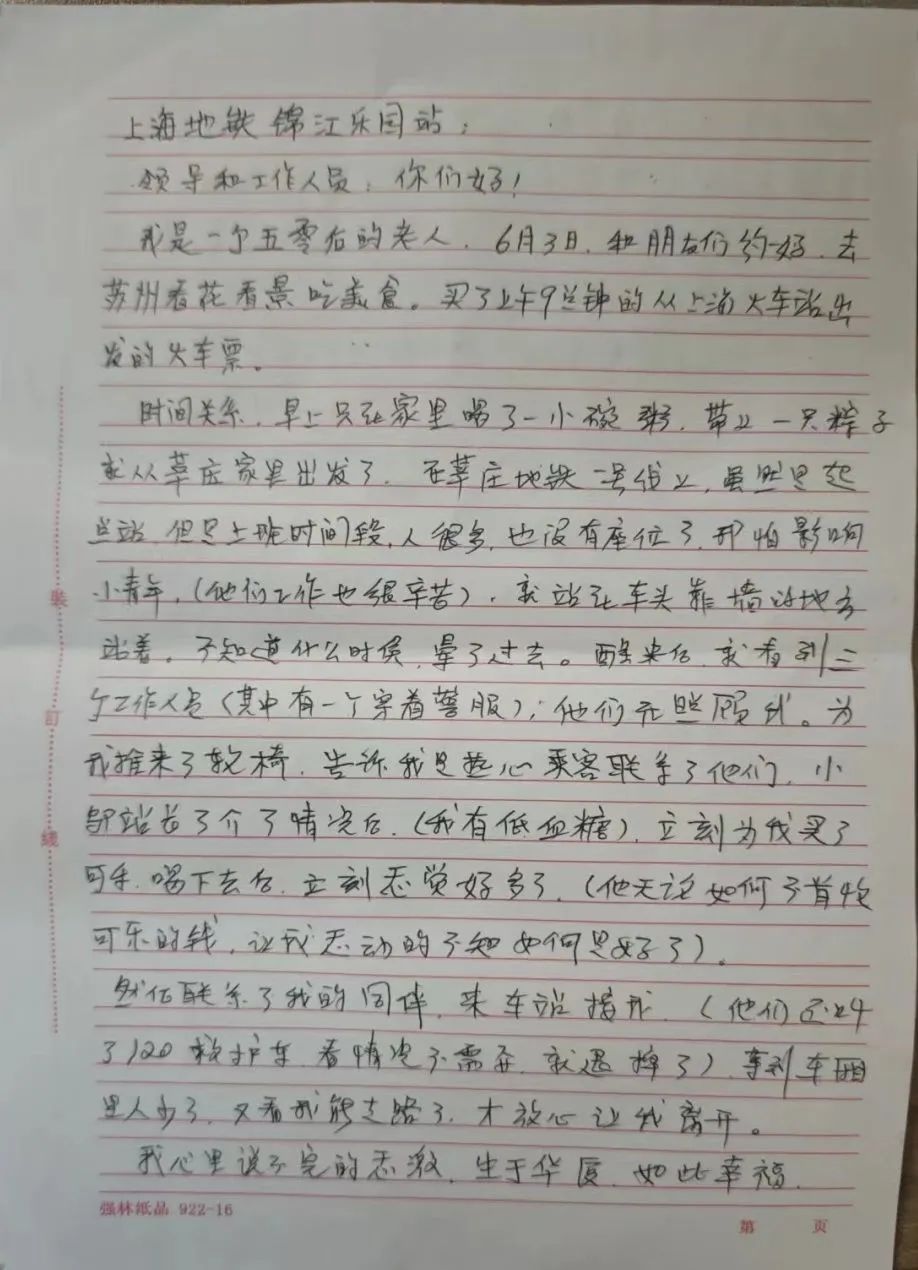 上海地铁锦江乐园站；
领导和工作人员，你们好！
我是一个五零后的老人，6月3日，和朋友们约好，去
苏州看花看景吃美食。买了上午9点钟的从上海火车站出
发的火车票。
时间关系，早上只在家里喝了一小碗粥，带上一只粽子
就从莘庄家里出发了，在莘庄地铁一号线上，虽然是起
点站，但是上班时间段，人很多，也没有座位了，那怕影响
小青年，(他们工作也很辛苦)，就站在车头靠墙的地方
站着。不知道什么时侯，晕了过去。醒来后，就看到三
个工作人员(其中有一个穿着警服)；他们在照顾我。为
我推来了软椅，告诉我是热心乘客联系了他们，小
邹站长了介了情况后，(我有低血糖)，立刻为我买了
可乐，喝下去后，立刻感觉好多了，(他无论如何不肯收
可乐的钱，让我感动的不知如何是好了)。
然后联系了我的同伴，来车站接我，(他们还叫
了120救护车，看情况不需要，就退掉了)，等到车厢
里人少了，又看我能走路了，才放心让我离开。
我心里说不完的感激，生于华厦，如此幸福，
装
订
线
强林纸品 922-16
第 页